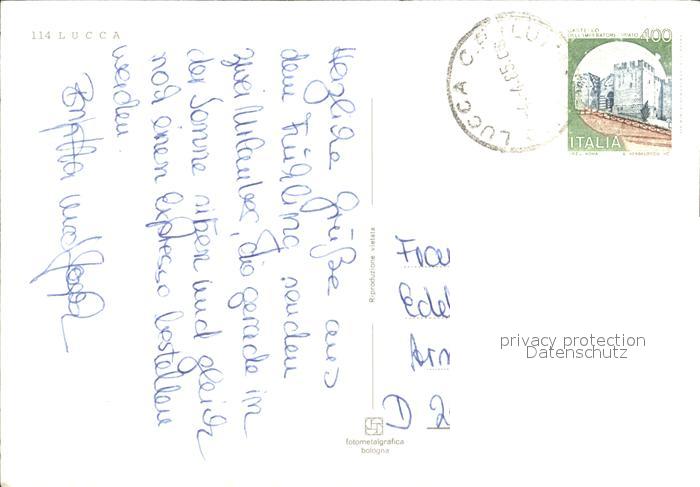 114 LUCCA
Herzliche Grüße aus
dem Frühling senden
zwei Urlauber, die gerade im
der Sonne sitzen und gleich
noch einen Expresso bestellen
werden.
Riproduzione vietata
fotometalgrafica
bologna
LUCCA C.P.
400
ITALIA
Frau
Edel
Arn
D 2
privacy protection
Datenschutz